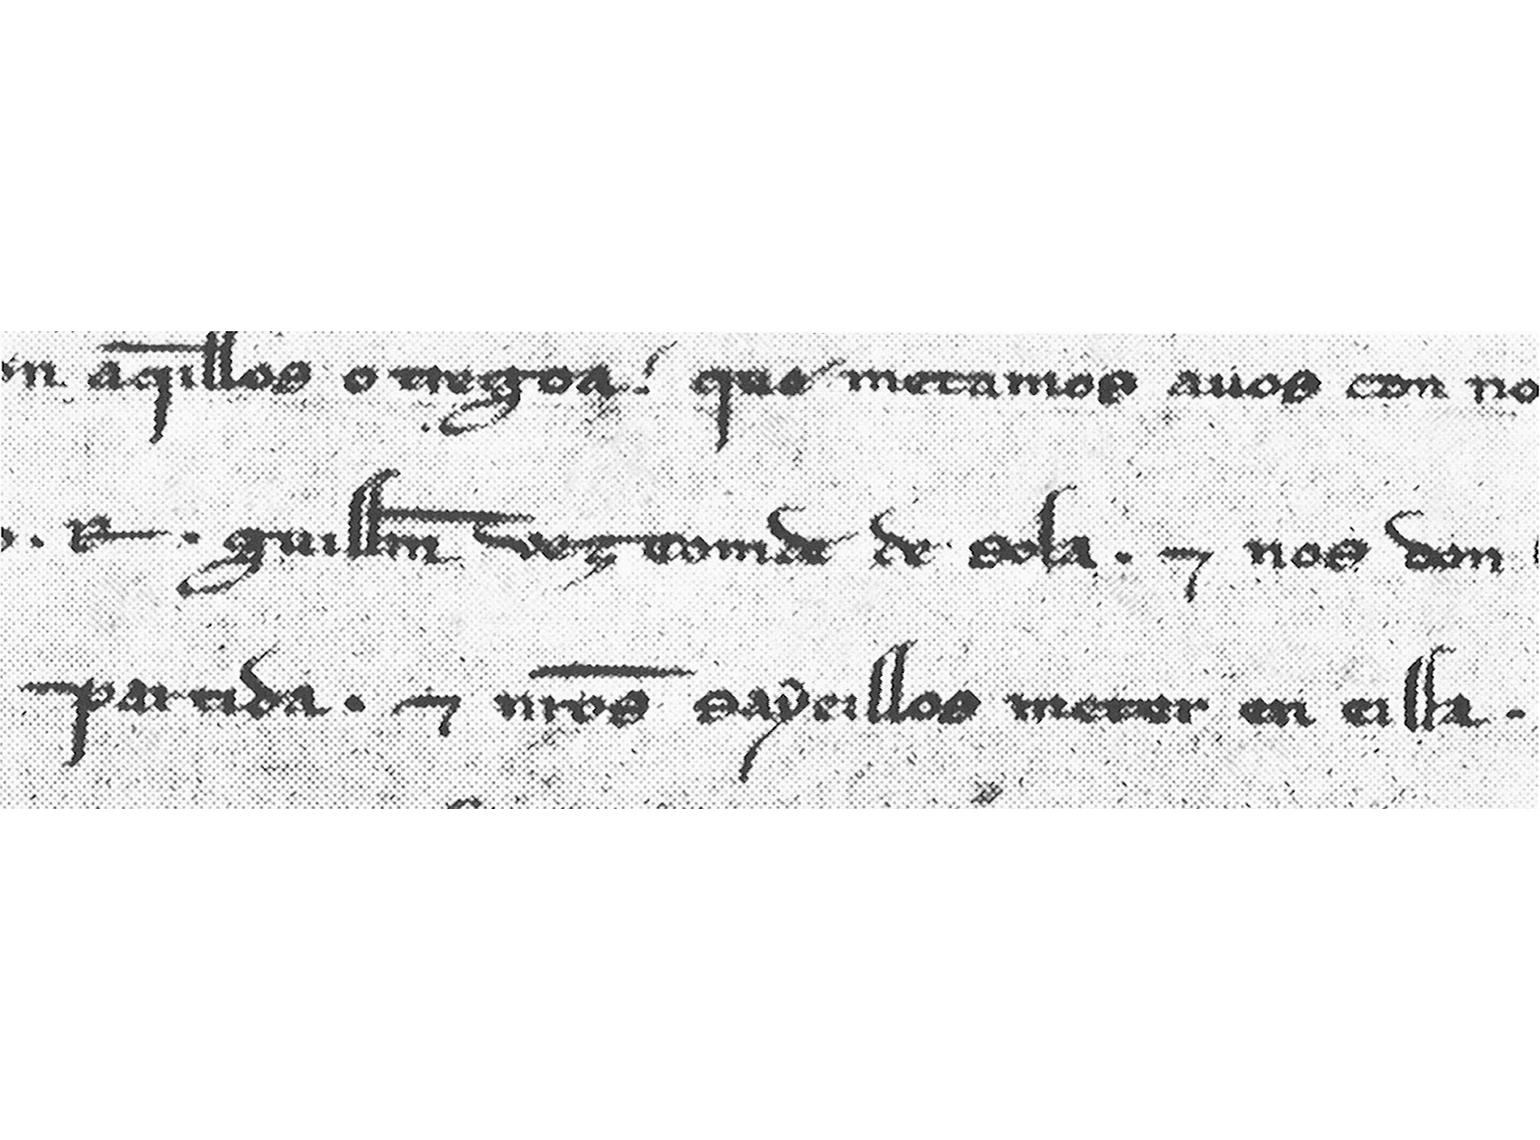 on aq̄illos o tregoa. que metamos auos con no
. R . guillm̄ vezcomde de sola . ⁊ nos don
partida . ⁊ nr̄os sayeillos meter en eilla .